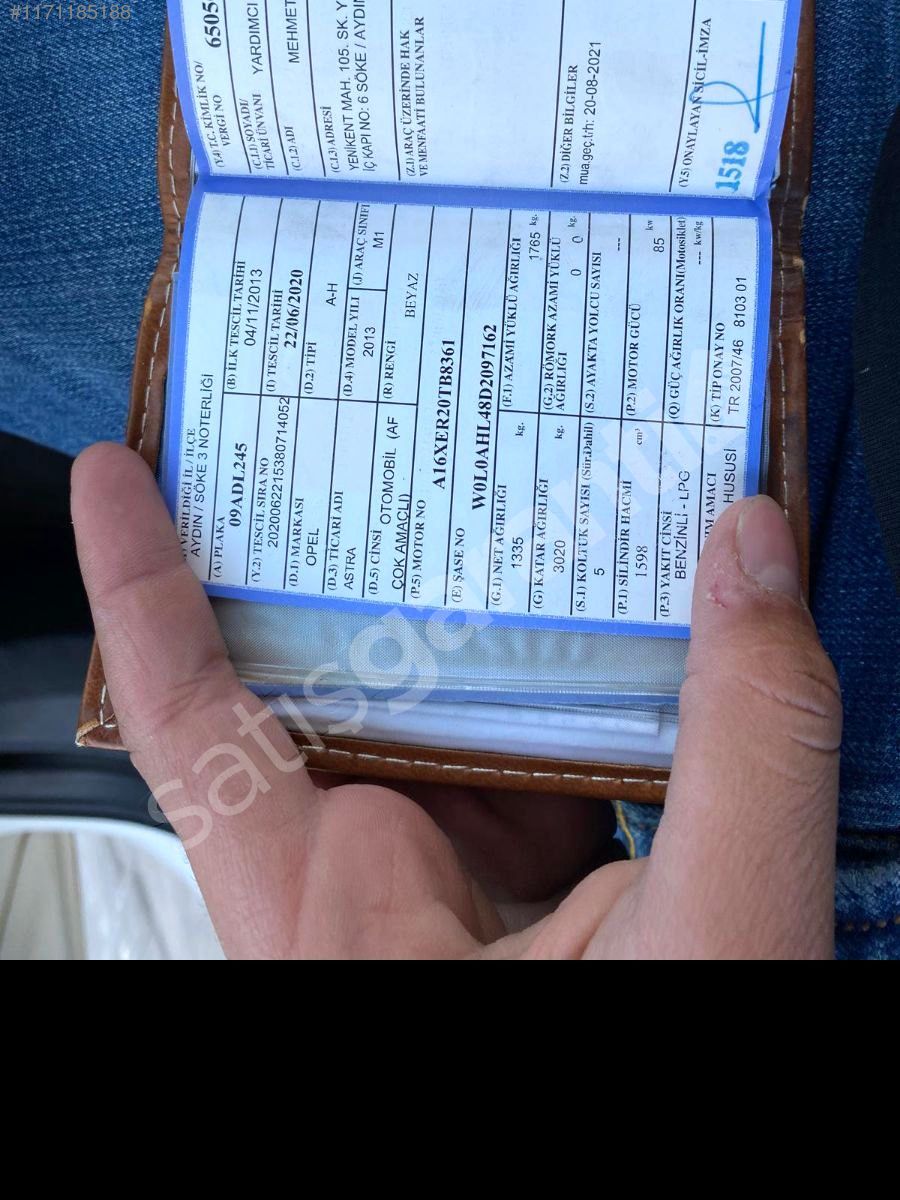 #1171185188
VERİLDİĞİ İL / İLÇE
AYDIN / SÖKE 3 NOTERLİĞİ
(A) PLAKA
09ADL245
(B) İLK TESCİL TARİHİ
04/11/2013
(Y.2) TESCİL SIRA NO
2020062215380714052
(I) TESCİL TARİHİ
22/06/2020
(D.1) MARKASI
OPEL
(D.2) TİPİ
A-H
(D.3) TİCARİ ADI
ASTRA
(D.4) MODEL YILI
2013
(J) ARAÇ SINIFI
M1
(D.5) CİNSİ
OTOMOBİL (AF
ÇOK AMAÇLI)
(R) RENGİ
BEYAZ
(P.5) MOTOR NO
A16XER20TB8361
(E) ŞASE NO
W0L0AHL48D2097162
(G.1) NET AĞIRLIĞI
1335
kg.
(F.1) AZAMİ YÜKLÜ AĞIRLIĞI
1765 kg.
(G) KATAR AĞIRLIĞI
3020
kg.
(G.2) RÖMORK AZAMİ YÜKLÜ
AĞIRLIĞI
0
0 kg.
(S.1) KOLTUK SAYISI (Sür.Dahil)
5
(S.2) AYAKTA YOLCU SAYISI
---
(P.1) SİLİNDİR HACMİ
1598
cm³
(P.2) MOTOR GÜCÜ
85 kw
(P.3) YAKIT CİNSİ
BENZİNLİ - LPG
(Q) GÜÇ AĞIRLIK ORANI(Motosiklet)
--- kw/kg
IM AMACI
HUSUSİ
(K) TİP ONAY NO
TR 2007/46 8103 01
(Y.4) T.C. KİMLİK NO/
VERGİ NO
6505
(C.1.1) SOYADI/
TİCARİ ÜNVANI
YARDIMCI
(C.1.2) ADI
MEHMET
(C.1.3) ADRESİ
YENİKENT MAH. 105. SK. Y
İÇ KAPI NO: 6 SÖKE / AYDIN
(Z.1) ARAÇ ÜZERİNDE HAK
VE MENFAATİ BULUNANLAR
(Z.2) DİĞER BİLGİLER
mua.geç.trh: 20-08-2021
(Y.5) ONAYLAYAN SİCİL-İMZA
1518
satisgarantili